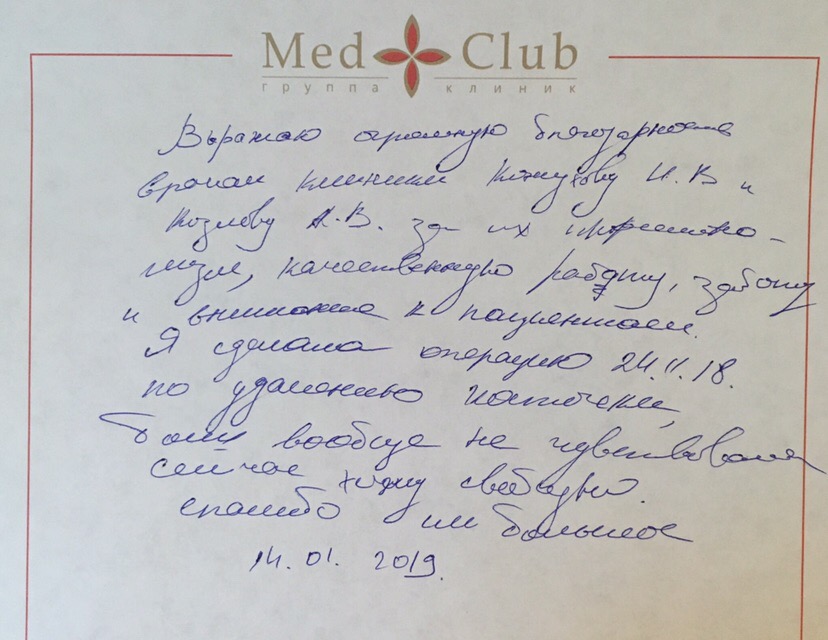 Med Club
группа клиник
Выражаю огромную благодарность
врачам клиники Кожухову И.В и
Козлову А.В. за их профессиона-
лизм, качественную работу, заботу
и внимание к пациентам.
Я сделала операцию 24.11.18.
по удалению косточки,
Боли вообще не чувствовала
сейчас хожу свободно.
спасибо им большое
14.01. 2019.